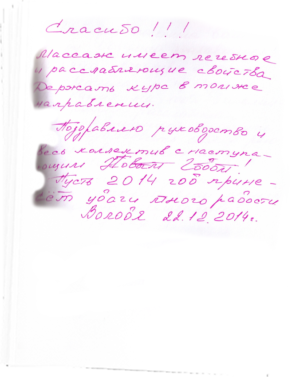 Спасибо!!!
Массаж имеет лечебные
и расслабляющие свойства
Держать курс в том же
направлении.
Поздравляю руководство и
весь коллектив с наступа-
ющим Новым Годом!
Пусть 2014 год прине-
сёт удачи много радости
Володя 22.12.2014г.